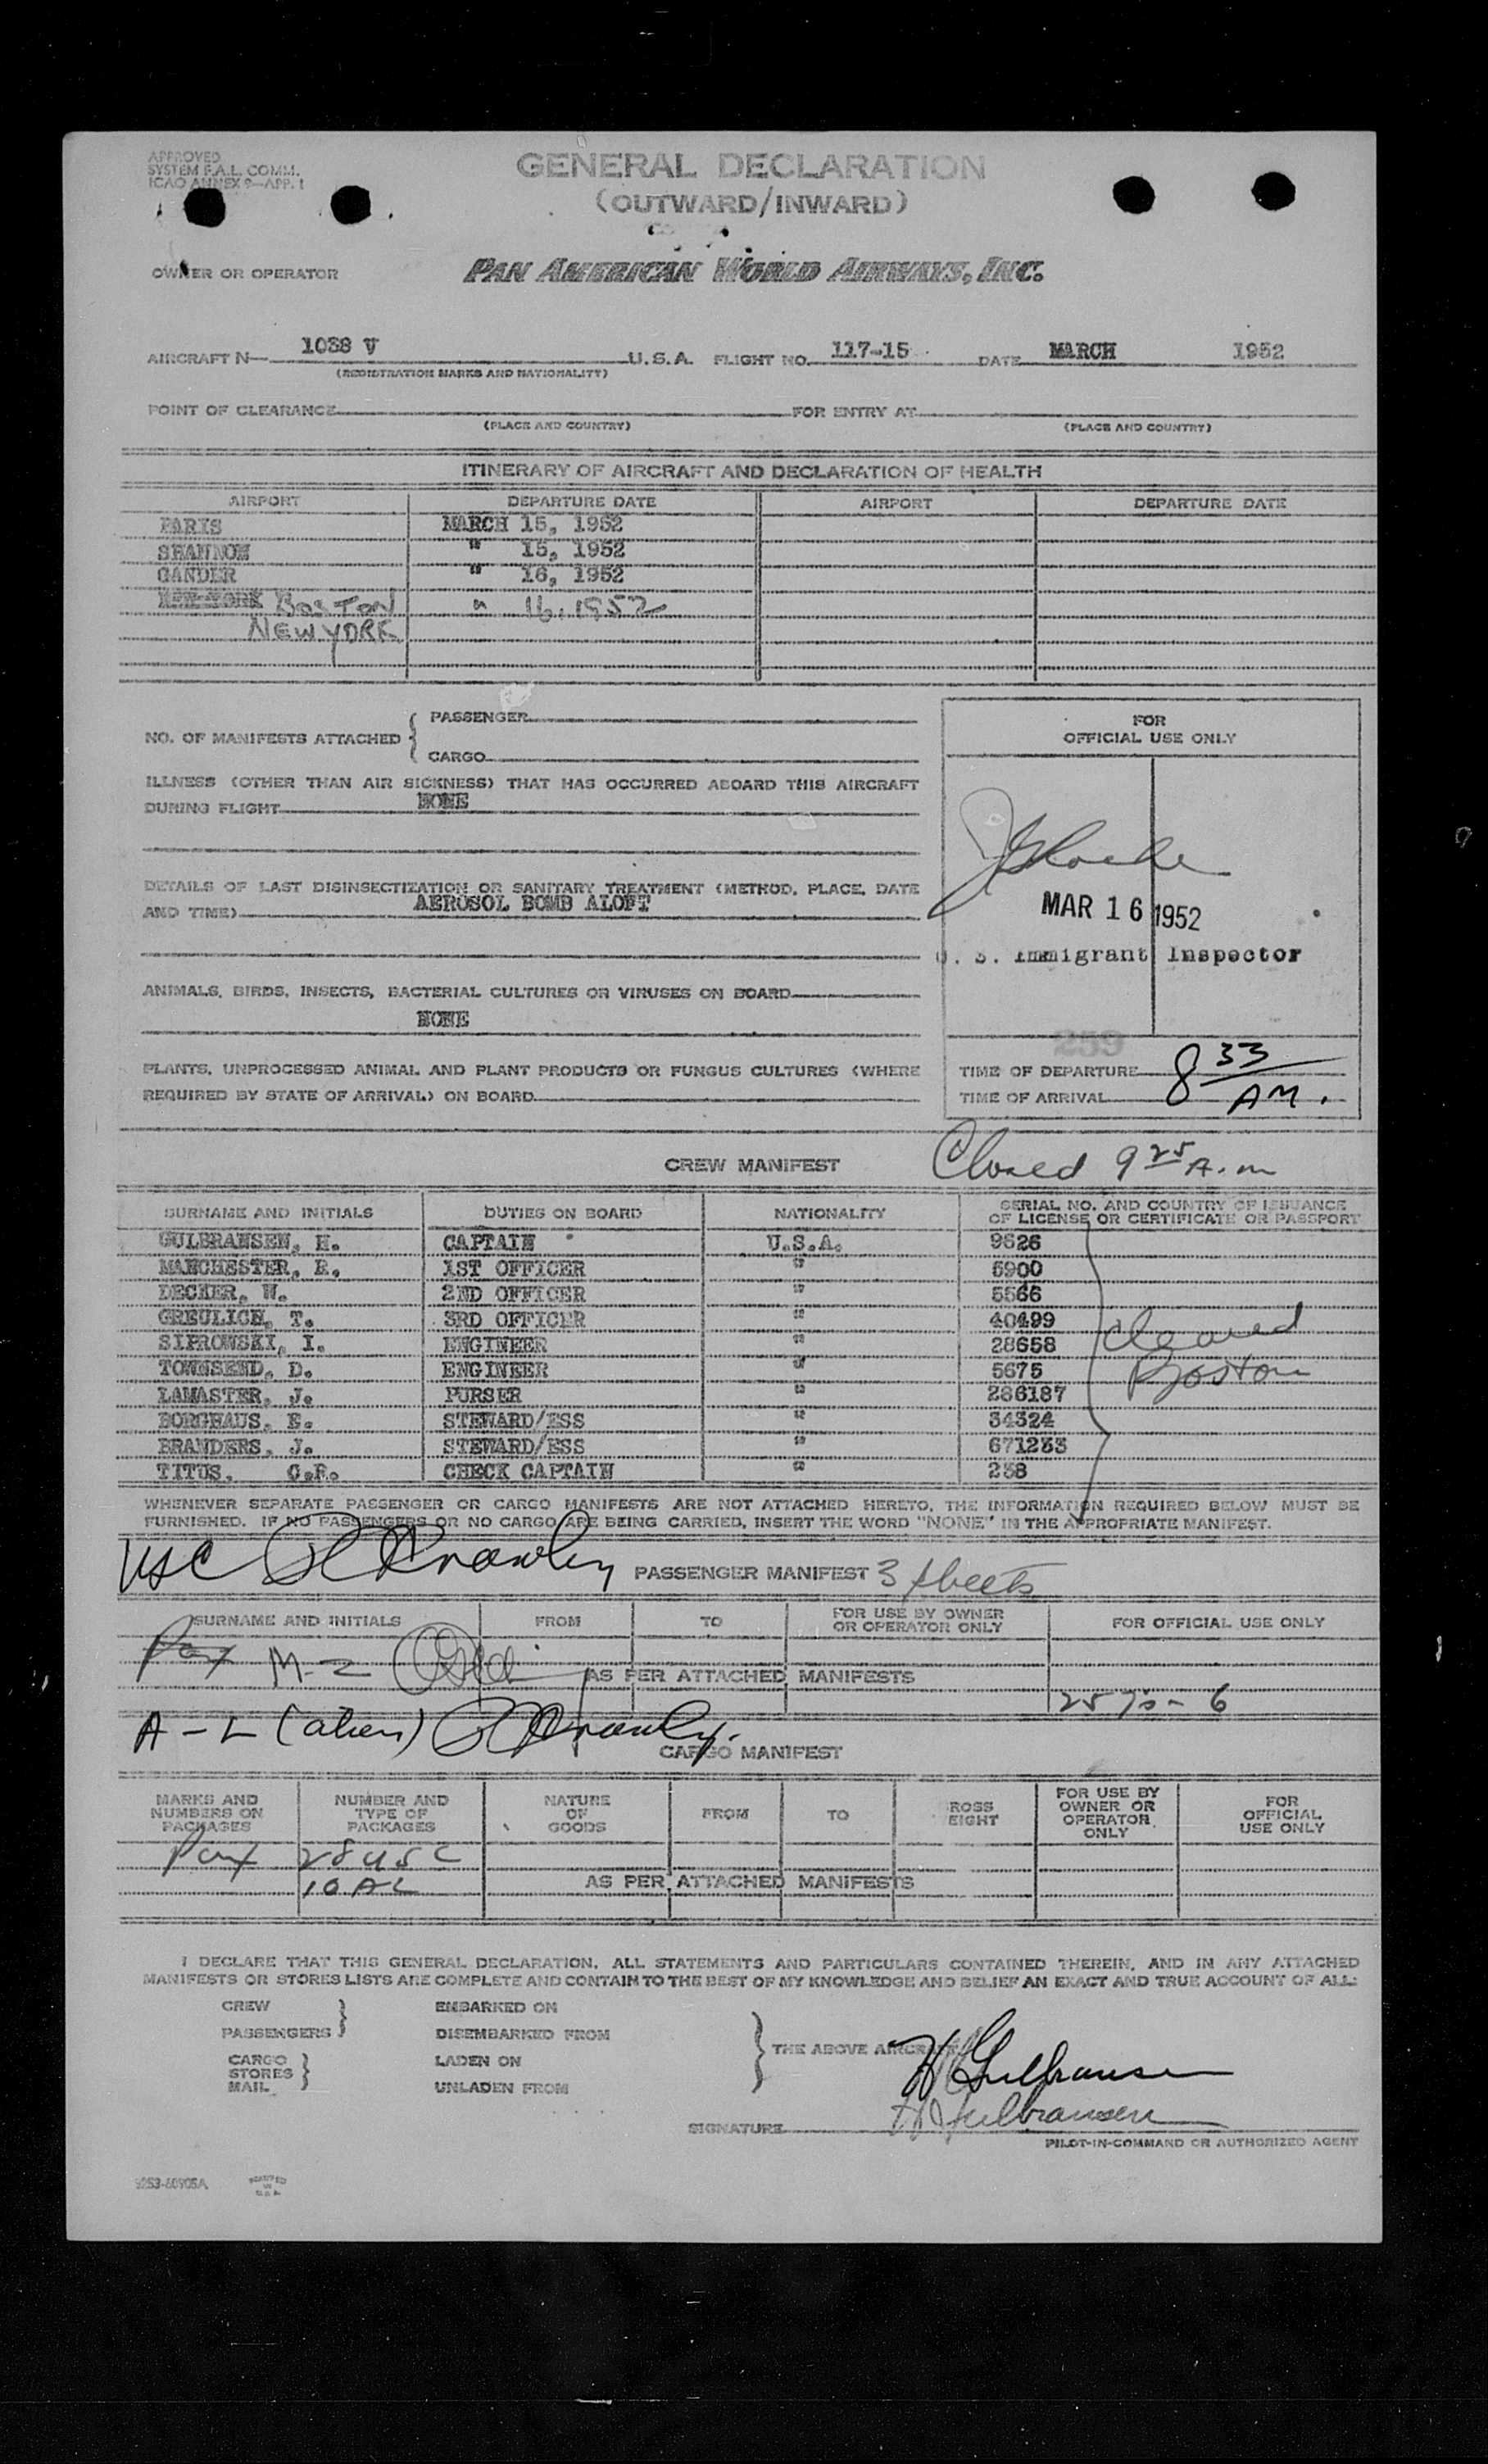 APPROVED
SYSTEM F.A.L. COMM.
ICAO ANNEX 9—APP. 1
GENERAL DECLARATION
(OUTWARD/INWARD)
OWNER OR OPERATOR PAN AMERICAN WORLD AIRWAYS, INC.
AIRCRAFT N— 1038 V U.S.A. FLIGHT NO. 117-15 DATE MARCH 1952
(REGISTRATION MARKS AND NATIONALITY)
POINT OF CLEARANCE FOR ENTRY AT
(PLACE AND COUNTRY) (PLACE AND COUNTRY)
ITINERARY OF AIRCRAFT AND DECLARATION OF HEALTH
AIRPORT DEPARTURE DATE AIRPORT DEPARTURE DATE
PARIS MARCH 15, 1952
SHANNON " 15, 1952
GANDER " 16, 1952
NEW YORK BOSTON " 16, 1952
NEW YORK
NO. OF MANIFESTS ATTACHED { PASSENGER
CARGO
FOR
OFFICIAL USE ONLY
ILLNESS (OTHER THAN AIR SICKNESS) THAT HAS OCCURRED ABOARD THIS AIRCRAFT
DURING FLIGHT NONE
DETAILS OF LAST DISINSECTIZATION OR SANITARY TREATMENT (METHOD, PLACE, DATE
AND TIME) AEROSOL BOMB ALOFT
MAR 16 1952
U. S. Immigrant Inspector
ANIMALS, BIRDS, INSECTS, BACTERIAL CULTURES OR VIRUSES ON BOARD
NONE
259
PLANTS, UNPROCESSED ANIMAL AND PLANT PRODUCTS OR FUNGUS CULTURES (WHERE
REQUIRED BY STATE OF ARRIVAL) ON BOARD
TIME OF DEPARTURE 8 33
TIME OF ARRIVAL AM.
CREW MANIFEST Closed 9 25 A.m
SURNAME AND INITIALS DUTIES ON BOARD NATIONALITY SERIAL NO. AND COUNTRY OF ISSUANCE
OF LICENSE OR CERTIFICATE OR PASSPORT
GULBRANSEN, H. CAPTAIN U.S.A. 9626
MANCHESTER, R. 1ST OFFICER " 5900
DECKER, W. 2ND OFFICER " 5566
GREULICH, T. 3RD OFFICER " 40499
SIPROWSKI, I. ENGINEER " 28658 cleared
TOWNSEND, D. ENGINEER " 5675 Boston
LAMASTER, J. PURSER " 286187
BORGHAUS, E. STEWARD/ESS " 34324
BRANDERS, J. STEWARD/ESS " 671233
TITUS, C.F. CHECK CAPTAIN " 238
WHENEVER SEPARATE PASSENGER OR CARGO MANIFESTS ARE NOT ATTACHED HERETO, THE INFORMATION REQUIRED BELOW MUST BE
FURNISHED. IF NO PASSENGERS OR NO CARGO ARE BEING CARRIED, INSERT THE WORD "NONE" IN THE APPROPRIATE MANIFEST.
USC Crowley PASSENGER MANIFEST 3 sheets
SURNAME AND INITIALS FROM TO FOR USE BY OWNER
OR OPERATOR ONLY FOR OFFICIAL USE ONLY
Pax M-Z AS PER ATTACHED MANIFESTS
A - L (alien) Crowley.
CARGO MANIFEST
MARKS AND
NUMBERS ON
PACKAGES NUMBER AND
TYPE OF
PACKAGES NATURE
OF
GOODS FROM TO GROSS
WEIGHT FOR USE BY
OWNER OR
OPERATOR
ONLY FOR
OFFICIAL
USE ONLY
Pax 28 USC
10 AL AS PER ATTACHED MANIFESTS
I DECLARE THAT THIS GENERAL DECLARATION, ALL STATEMENTS AND PARTICULARS CONTAINED THEREIN, AND IN ANY ATTACHED
MANIFESTS OR STORES LISTS ARE COMPLETE AND CONTAIN TO THE BEST OF MY KNOWLEDGE AND BELIEF AN EXACT AND TRUE ACCOUNT OF ALL:
CREW EMBARKED ON
PASSENGERS DISEMBARKED FROM
CARGO LADEN ON
STORES
MAIL UNLADEN FROM
THE ABOVE AIRCRAFT
H Gulbransen
SIGNATURE H Gulbransen
PILOT-IN-COMMAND OR AUTHORIZED AGENT
9253-60905A PRINTED
IN
U.S.A.